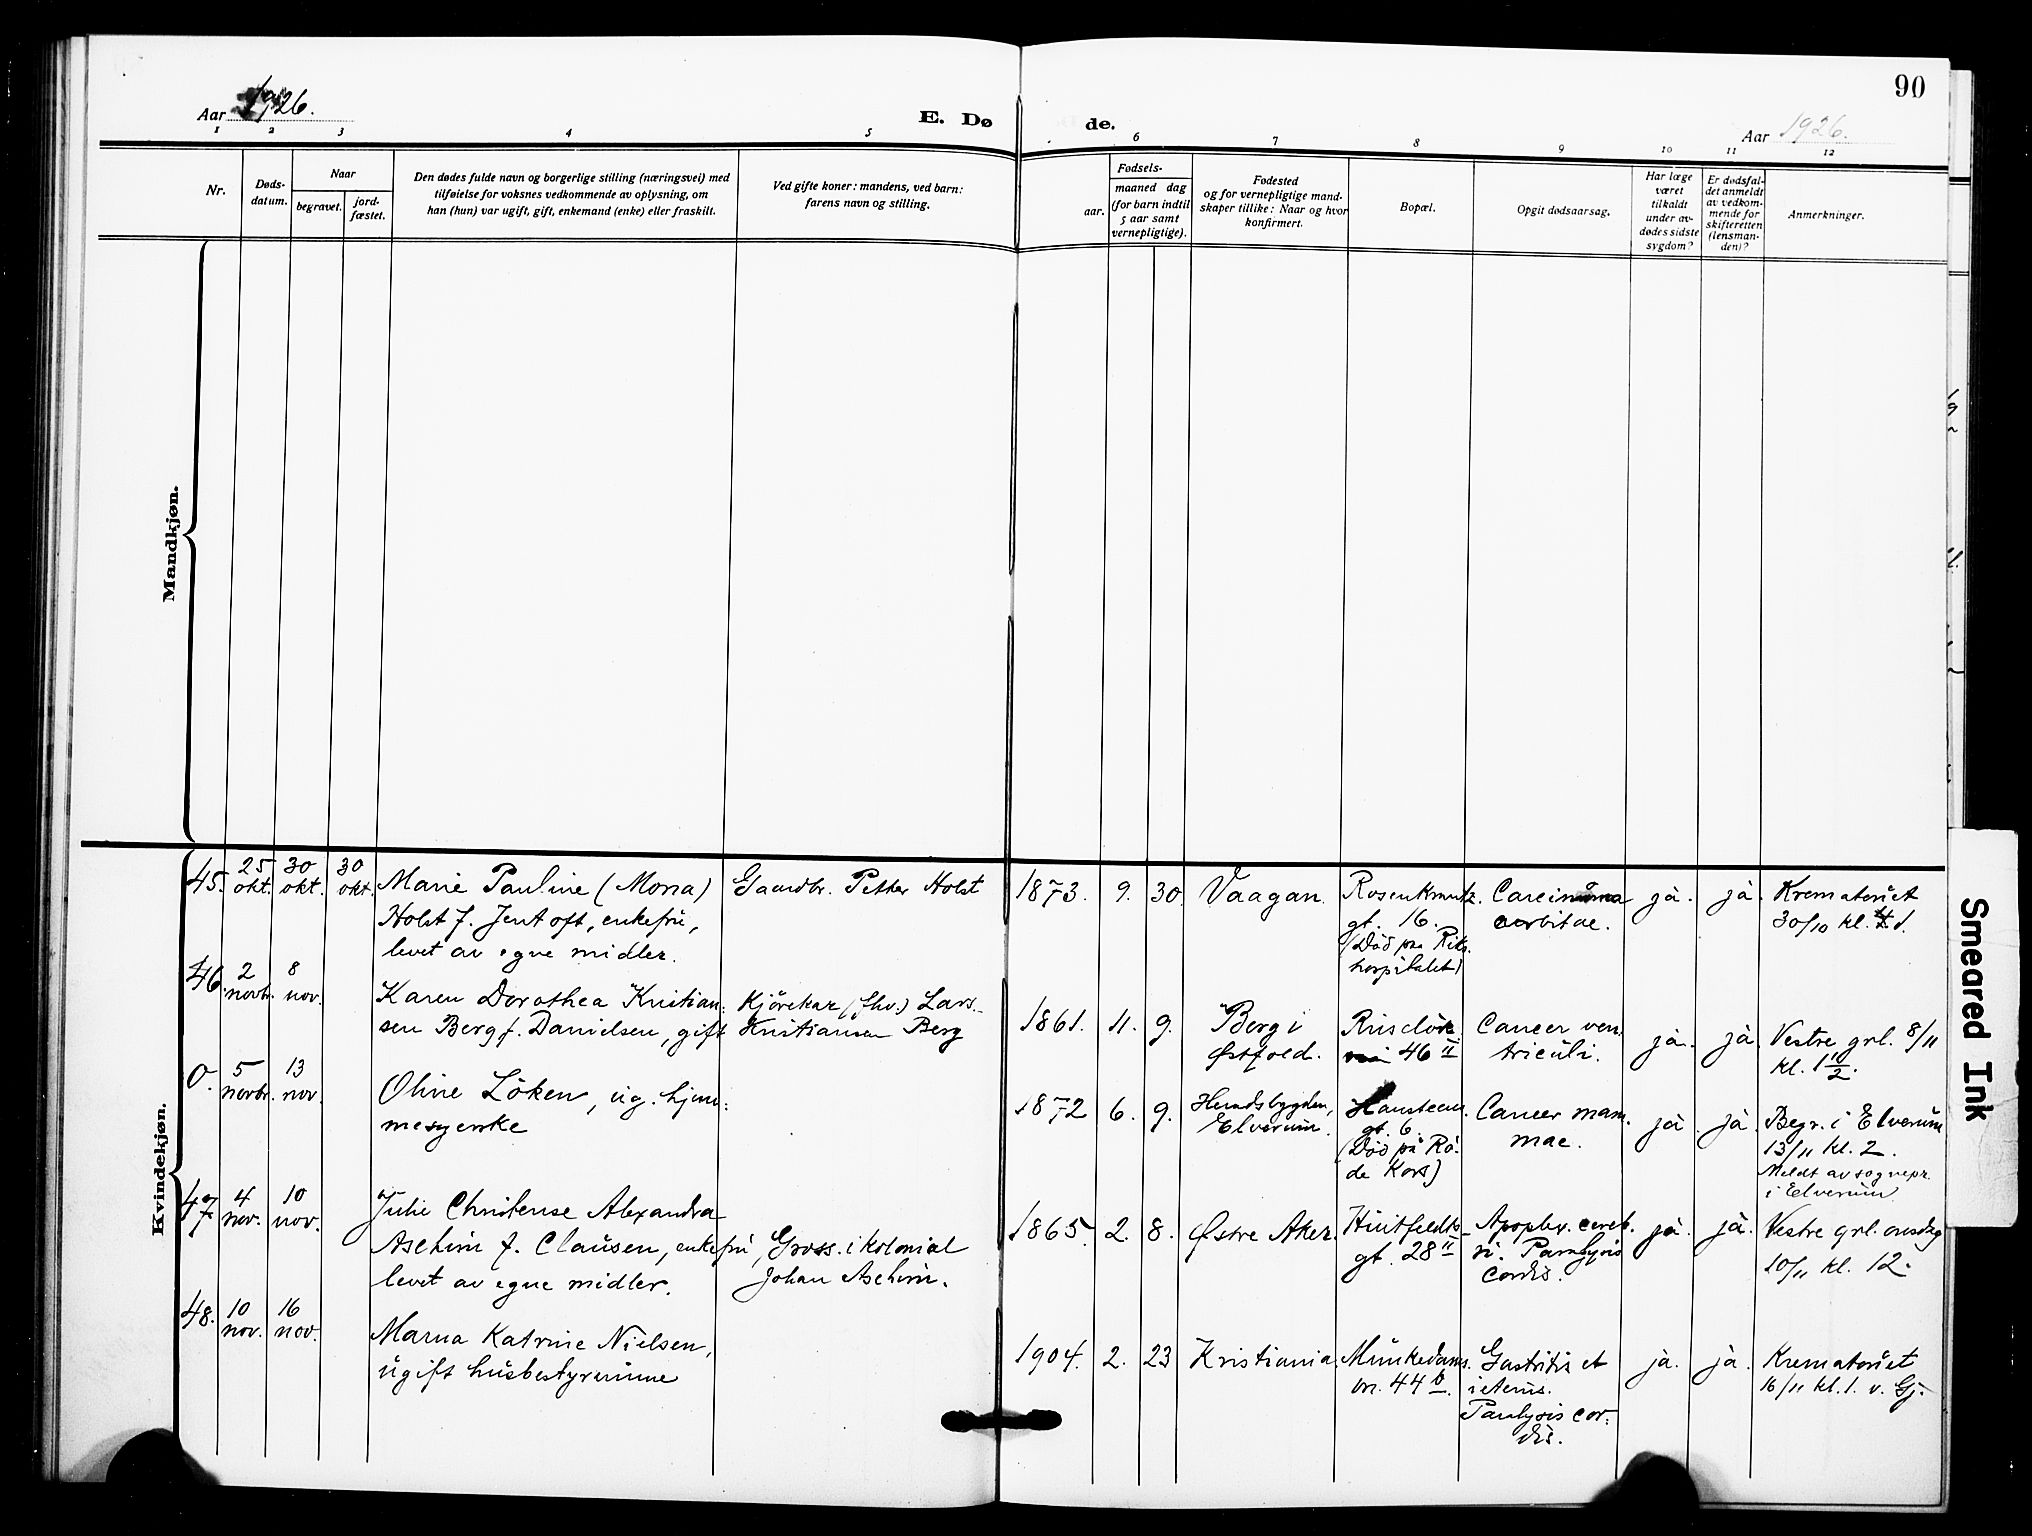 90
Aar 1926.
E. Dø
de.
Aar 1926.
1 2 3 4 5 6 7 8 9 10 11 12
Nr.
Døds-
datum.
Naar
begravet.
jord-
fæstet.
Den dødes fulde navn og borgerlige stilling (næringsvei) med
tilføielse for voksnes vedkommende av oplysning, om
han (hun) var ugift, gift, enkemand (enke) eller fraskilt.
Ved gifte koner: mandens, ved barn:
farens navn og stilling.
Fødsels-
aar.
maaned dag
(for barn indtil
5 aar samt
vernepligtige).
Fødested
og for vernepligtige mand-
skaper tillike: Naar og hvor
konfirmert.
Bopæl.
Opgit dødsaarsag.
Har læge
været
tilkaldt
under av-
dødes sidste
sygdom?
Er dødsfal-
det anmeldt
av vedkom-
mende for
skifteretten
(lensman-
den)?
Anmerkninger.
Mandkjøn.
Kvindekjøn.
45.
25
okt.
30
okt.
30
okt.
Marie Pauline (Mona)
Holst f. Jentoft, enkefru,
levet av egne midler.
Gaardbr. Petter Holst
1873. 9. 30.
Vaagan.
Rosenkrantz.
gt. 16.
(Död paa Riks.
hospitalet)
Carcinoma
orbitae.
ja. ja.
Krematoriet
30/10 kl. 1.
46.
2
novbr.
8
nov.
Karen Dorothea Kristian-
sen Berg f. Danielsen, gift
Kjørekar (Ehv.) Lars
Kristiansen Berg
1861. 11. 9.
Berg i
Østfold.
46 II
Cancer ven
triculi.
ja. ja.
Vestre grl. 8/11
kl. 1 1/2.
0.
5
novbr.
13
nov.
Oline Löken, ug. hjem-
mesyerske
1872 6. 9.
Hernesbygden,
Elverum.
Hansteens.
gt. 6.
(Död på Rö-
de Kors)
Cancer mam
mae.
ja ja
Begr. i Elverum
13/11 kl. 2.
Meldt av sognepr.
i Elverum
47.
4
nov.
10
nov.
Julie Christense Alexandra
Ascheim f. Clausen, enkefru,
levet av egne midler.
Gross. i kolonial
Johan Ascheim.
1865. 2. 8.
Østre Aker.
Huitfeldts
gt. 28 II
Apoplex. cereb-
ri. Paralysis
Cordis.
ja. ja.
Vestre grl. onsdag
10/11 kl. 12.
48.
10
nov.
16
nov.
Marna Katrine Nielsen,
ugift husbestyrerinne
1904. 2. 23
Kristiania
Munkedams.
vn. 44 b.
Gastritis et
icterus.
Paralysis cor-
dis.
ja. ja.
Krematoriet
16/11 kl. 1. v. Gj.
Smeared Ink